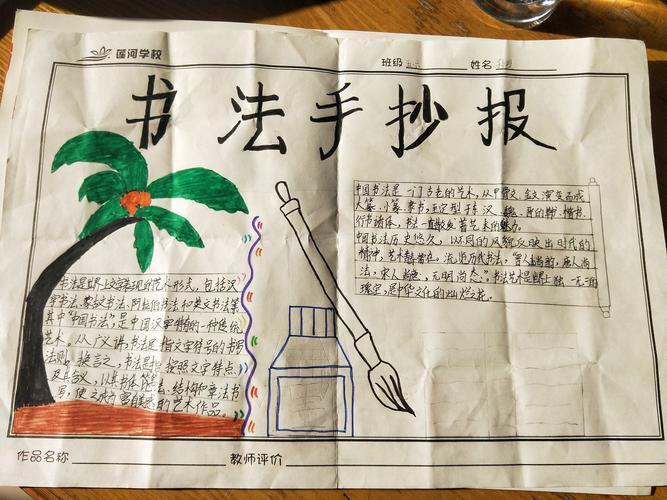 莲河学校
班级 姓名
书法手抄报
中国书法是一门古老的艺术,从甲骨文、金文演变而成
大篆、小篆、隶书,至定型于东汉、魏、晋的草书、楷书、
行书诸体,书法一直散发着艺术的魅力。
中国书法历史悠久,以不同的风貌反映出时代的
精神,艺术青春常在。浏览历代书法,"晋人尚韵,唐人尚
法,宋人尚意,元明尚态"。书法艺术是独一无二的
瑰宝,是中华文化的灿烂之花。
书法是世界上文字表现的艺术形式,包括汉
字书法、蒙文书法、阿拉伯书法和英文书法等。
其中"中国书法",是中国汉字特有的一种传统
艺术。从广义讲,书法是指文字符号的书写
法则。换言之,书法是指按照文字特点
及其含义,以其书体笔法、结构和章法书
写,使之成为富有美感的艺术作品。
作品名称 教师评价